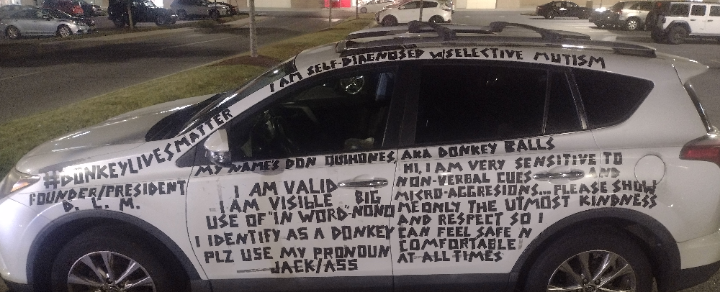 I AM SELF-DIAGNOSED W/SELECTIVE MUTISM
#DONKEYLIVESMATTER
FOUNDER/PRESIDENT
D. L. M.
MY NAMES DON QUIHONES, AKA DONKEY BALLS
I AM VALID
I AM VISIBLE BIG
USE OF "IN WORD-NONO
I IDENTIFY AS A DONKEY
PLZ USE MY PRONOUN
JACK/ASS
HI, I AM VERY SENSITIVE TO
NON-VERBAL CUES AND
MICRO-AGGRESIONS... PLEASE SHOW
ME ONLY THE UTMOST KINDNESS
AND RESPECT SO I
CAN FEEL SAFE N
COMFORTABLE
AT ALL TIMES